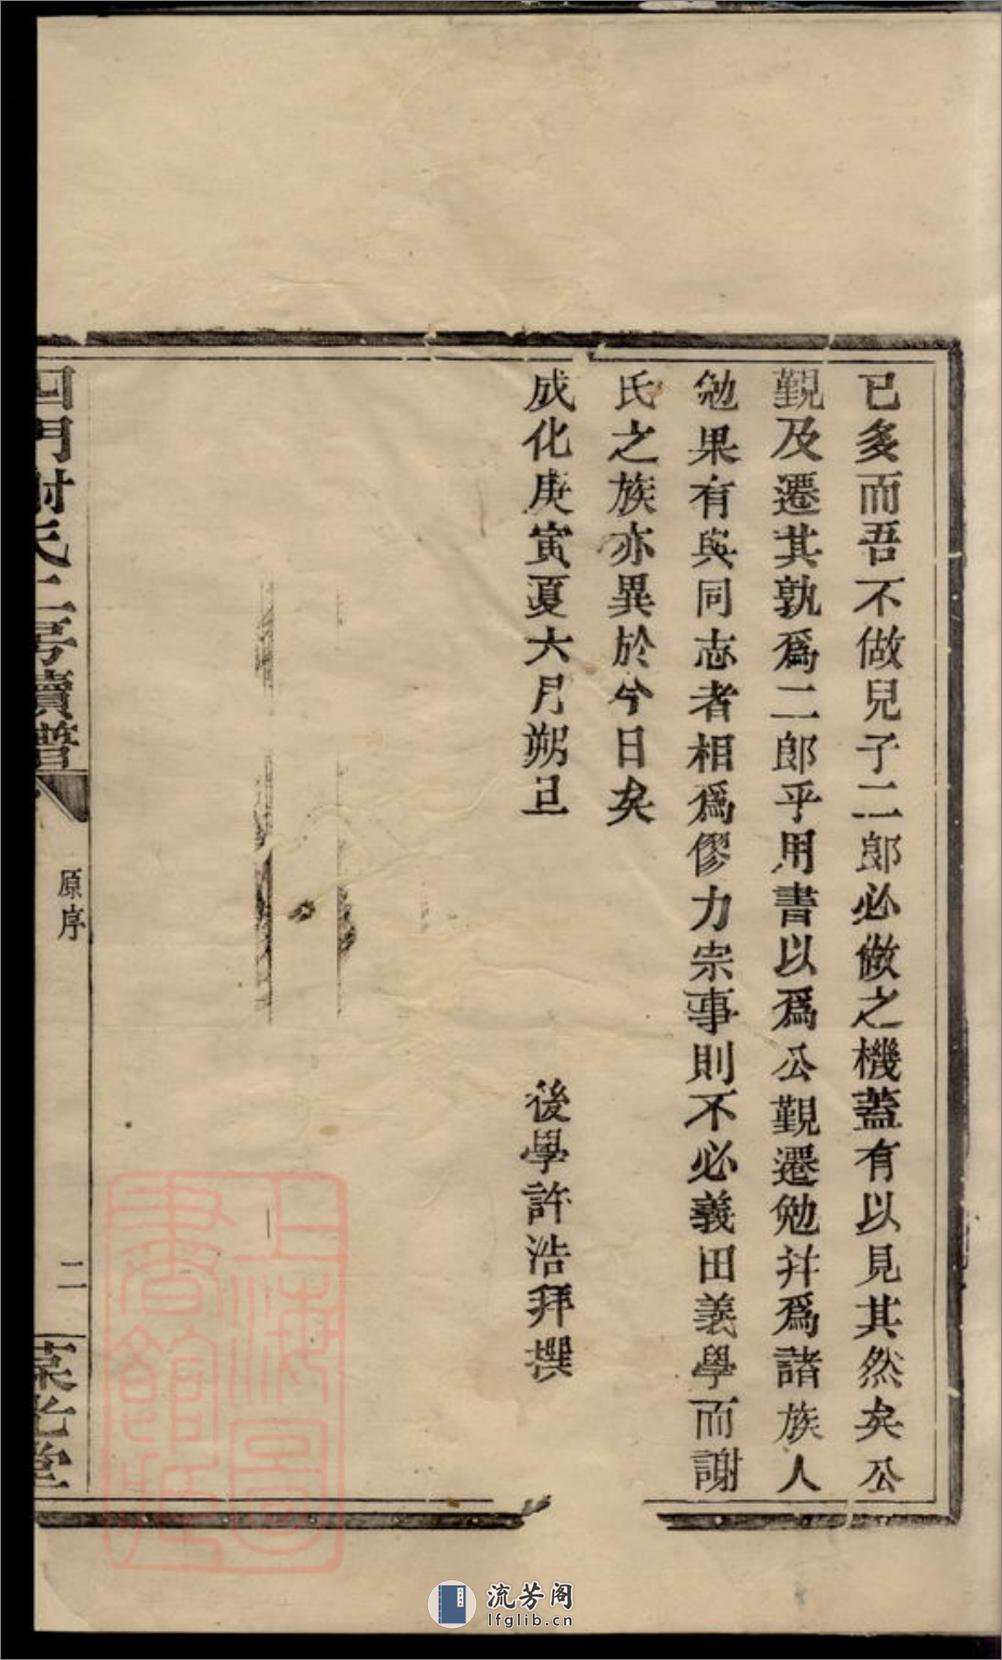 已多而吾不做兒子二郎必做之機蓋有以見其然矣公
覲及遷其孰爲二郎乎用書以爲公覲遷勉幷爲諸族人
勉果有與同志者相爲僇力崇事則不必義田義學而謝
氏之族亦異於今日矣
成化庚寅夏六月朔旦
後學許浩拜撰
四門謝氏二房續譜
原序
二
堂
上海圖書館藏
流芳阁
lfglib.cn